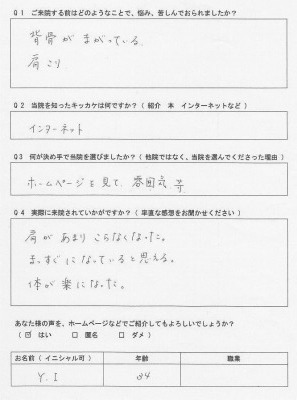 Q1 ご来院する前はどのようなことで、悩み、苦しんでおられましたか？
背骨が まがっている。
肩こり
Q2 当院を知ったキッカケは何ですか？（紹介 本 インターネットなど）
インターネット
Q3 何が決め手で当院を選びましたか？（他院ではなく、当院を選んでくださった理由）
ホームページを見て、雰囲気 等
Q4 実際に来院されていかがですか？（率直な感想をお聞かせください）
肩が あまり こらなくなった。
まっすぐになっていると思える。
体が 楽になった。
あなた様の声を、ホームページなどでご紹介してもよろしいでしょうか？
（☑ はい □ 匿名 □ ダメ）
お名前（イニシャル可） 年齢 職業
Y.I 34